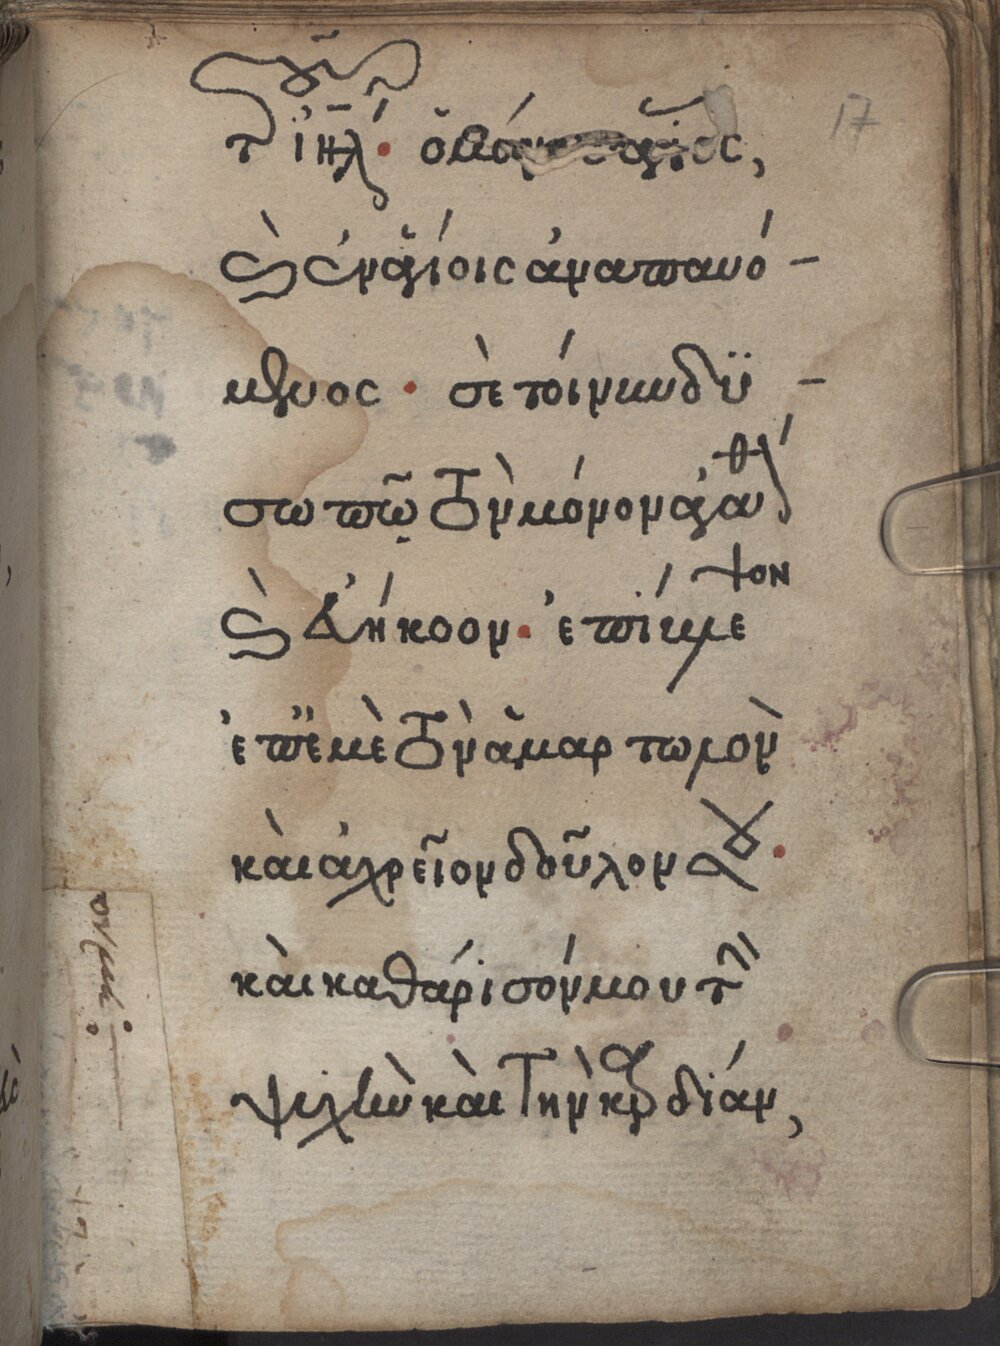 17
τ ἰηλ· ὁ μόνος ἅγιος,
ϗ ἐν ἁγίοις ἀναπαυό-
μενος· σὲ τοίνυν δυ-
σωπῶ τὸν μόνον ἀγαθ
ϗ εὐήκοον· ἐπίβλεψον
ἐπ' ἐμὲ τὸν ἁμαρτωλὸν
καὶ ἀχρεῖον δοῦλον σου·
καὶ καθάρισόν μου τὴν
ψυχὴν καὶ τὴν καρδίαν,